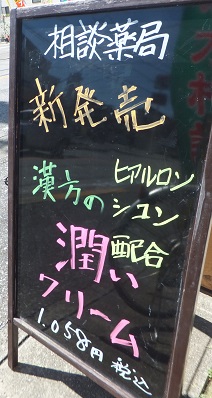 相談薬局
新発売
漢方の
ヒアルロン
シコン
配合
潤い
クリーム
1,058円 税込